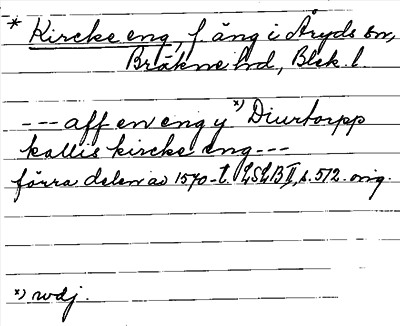 * Kircke eng, f. äng i Åryds sn,
Bräkne hd, Blek. l.
--- aff en eng y x) Diurtorpp
kallis kircke eng ---
förra delen av 1570-t. LSLB II, s. 572. orig.
x) udj.